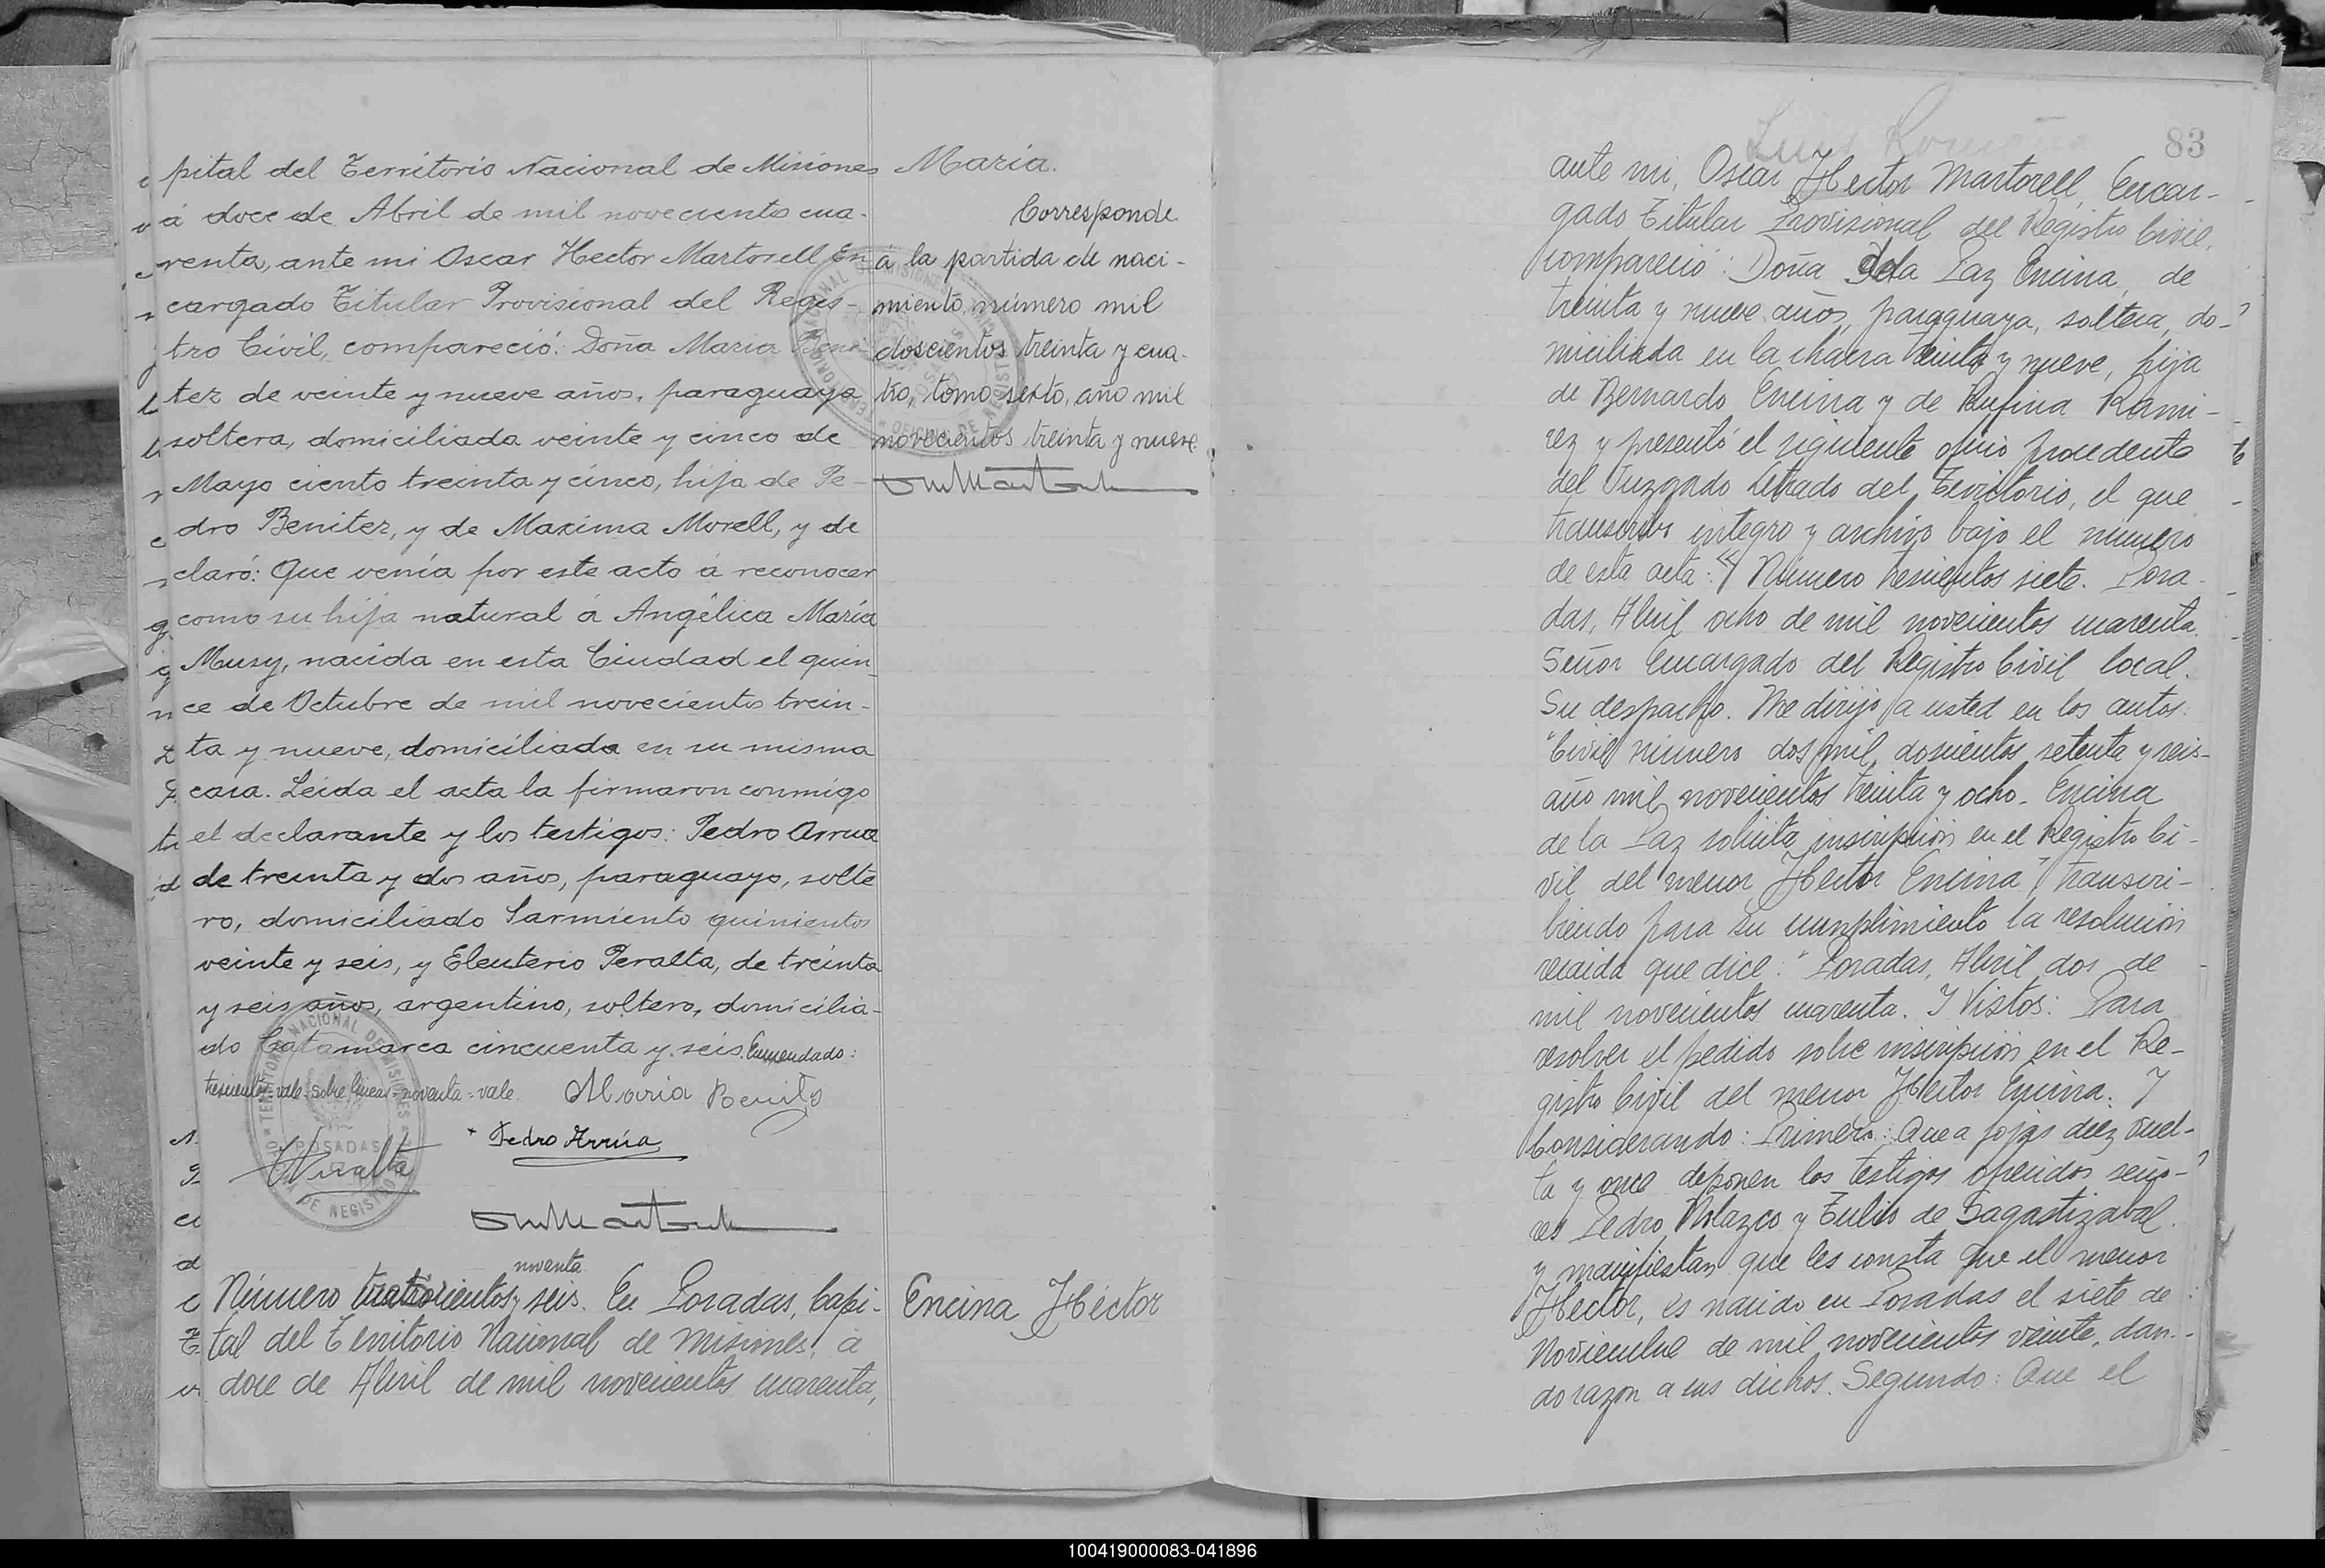 pital del Territorio Nacional de Misiones
á doce de Abril de mil novecientos cua-
renta, ante mi Oscar Hector Martorell En
cargado Titular Provisional del Regis-
tro Civil, compareció: Doña Maria Beni-
tez de veinte y nueve años, paraguaya
soltera, domiciliada veinte y cinco de
Mayo ciento treinta y cinco, hija de Pe-
dro Benitez, y de Maxima Morell, y de
claró: Que venía por este acto á reconocer
como su hija natural á Angélica María
Musy, nacida en esta Ciudad el quin-
ce de Octubre de mil novecientos trein-
ta y nueve, domiciliada en su misma
casa. Leida el acta la firmaron conmigo
el declarante y los testigos: Pedro Arrua
de treinta y dos años, paraguayo, solte
ro, domiciliado Sarmiento quinientos
veinte y seis, y Eleuterio Peralta, de treinta
y seis años, argentino, soltero, domicilia-
do Catamarca cincuenta y seis. Enmendado:
trescientos=vale=sobre lineas=noventa=vale.
Maria Benites
Pedro Arrúa
EPeralta
TERRITORIO NACIONAL DE MISIONES
POSADAS
OFICINA DE REGISTRO
María.
Corresponde
á la partida de naci-
miento número mil
doscientos treinta y cua-
tro, tomo sexto, año mil
novecientos treinta y nueve.
TERRITORIO NACIONAL DE MISIONES
POSADAS
OFICINA DE REGISTRO CIVIL
noventa
Número trescientos y seis. En Posadas, Capi-
tal del Territorio Nacional de Misiones, á
doce de Abril de mil novecientos cuarenta,
Encina Héctor
Luis Romaña
83
ante mi, Oscar Hector Martorell, Encar-
gado Titular Provisional del Registro Civil,
compareció: Doña de la Paz Encina, de
treinta y nueve años, paraguaya, soltera, do-
miciliada en la chacra treinta y nueve, hija
de Bernardo Encina y de Rufina Rami-
rez y presentó el siguiente oficio procedente
del Juzgado Letrado del Territorio, el que
transcribo integro y archivo bajo el número
de esta acta: "Número trescientos siete. Posa-
das, Abril ocho de mil novecientos cuarenta.
Señor Encargado del Registro Civil local.
Su despacho. Me dirijo a usted en los autos:
"Civil número dos mil doscientos setenta y seis-
año mil novecientos treinta y ocho_ Encina
de la Paz solicita inscripción en el Registro Ci-
vil del menor Hector Encina", transcri-
biendo para su cumplimiento la resolución
recaida que dice: "Posadas, Abril dos de
mil novecientos cuarenta. Y Vistos: Para
resolver el pedido sobre inscripción en el Re-
gistro Civil del menor Hector Encina. Y
Considerando: Primero: Que a fojas diez vuel-
ta y once deponen los testigos ofrecidos seño-
res Pedro Nolazco y Tulio de Sagastizabal
y manifiestan que les consta que el menor
Hector, es nacido en Posadas el siete de
Noviembre de mil novecientos veinte, dan-
do razon a sus dichos. Segundo: Que el
100419000083-041896